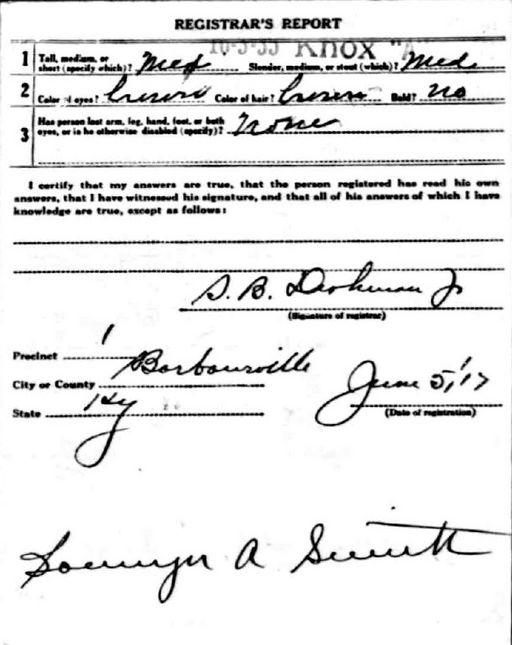 REGISTRAR'S REPORT
16-3-35 Knox "A
1 Tall, medium, or short (specify which)? Med Slender, medium, or stout (which)? Med
2 Color of eyes? Brown Color of hair? Brown Bald? no
3 Has person lost arm, leg, hand, foot, or both
eyes, or is he otherwise disabled (specify)? none
I certify that my answers are true, that the person registered has read his own
answers, that I have witnessed his signature, and that all of his answers of which I have
knowledge are true, except as follows:
S. B. Dishman Jr
(Signature of registrar)
Precinct 1
City or County Barbourville
State Ky
June 5, '17
(Date of registration)
A Smith